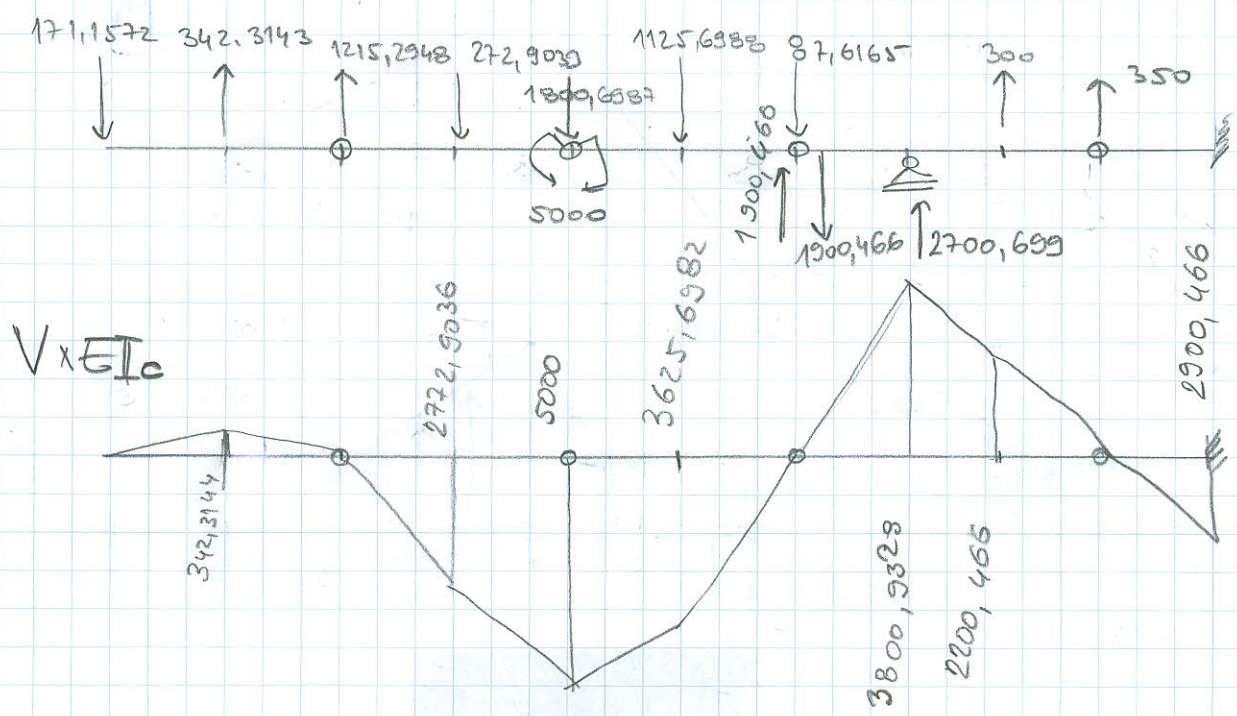 171,1572 342,3143 1215,2948 272,9039 1125,6988 87,6165 300 350
1800,6987
5000
1900,466 1900,466 2700,699
V x EIc
342,3144 2772,9036 5000 3625,6982 3800,9329 2200,466 2900,466